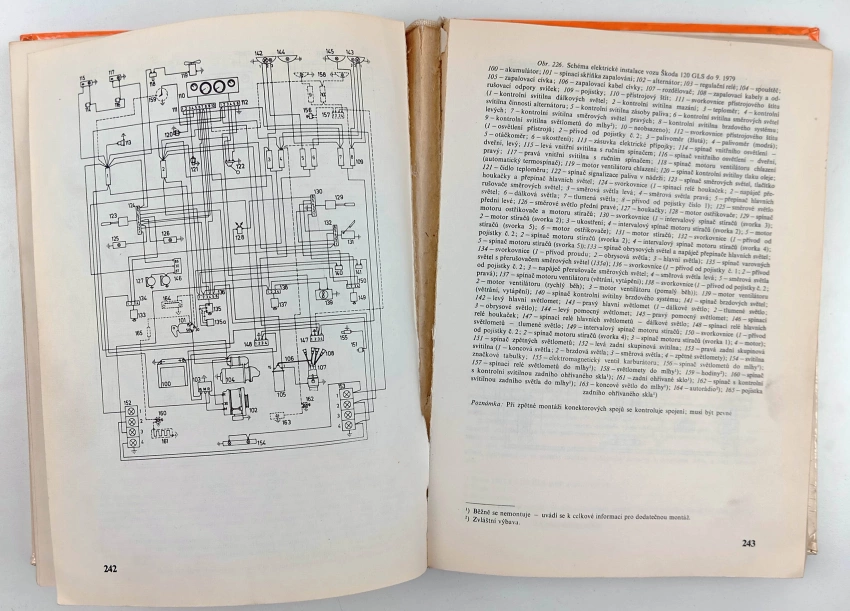 115
117
118
116
142
144
145
143
159
158
110
111
112
156
157
120
119
121
122
108
109
124
123
125
126
128
130
129
132
131
127
146
134
133
164
136
135
135a
101
165
138
137
139
140
141
150
149
148
147
155
151
100
103
104
102
106
105
107
108
162
163
152
1
2
3
4
160
161
154
153
1
2
3
4
242
Obr. 226. Schéma elektrické instalace vozu Škoda 120 GLS do 9. 1979
100 – akumulátor; 101 – spínací skříňka zapalování; 102 – alternátor; 103 – regulační relé; 104 – spouštěč;
105 – zapalovací cívka; 106 – zapalovací kabel cívky; 107 – rozdělovač; 108 – zapalovací kabely a od-
rušovací odpory svíček; 109 – pojistky; 110 – přístrojový štít; 111 – svorkovnice přístrojového štítu
(1 – kontrolní svítilna dálkových světel; 2 – kontrolní svítilna mazání; 3 – teploměr; 4 – kontrolní
svítilna činnosti alternátoru; 5 – kontrolní svítilna zásoby paliva; 6 – kontrolní svítilna směrových světel
levých; 7 – kontrolní svítilna směrových světel pravých; 8 – kontrolní svítilna brzdového systému;
9 – kontrolní svítilna světlometů do mlhy²); 10 – neobsazeno); 112 – svorkovnice přístrojového štítu
(1 – osvětlení přístrojů; 2 – přívod od pojistky č. 2; 3 – palivoměr (žlutá); 4 – palivoměr (modrá);
5 – otáčkoměr; 6 – ukostření); 113 – zásuvka elektrické přípojky; 114 – spínač vnitřního osvětlení –
dveřní, levý; 115 – levá vnitřní svítilna s ručním spínačem; 116 – spínač vnitřního osvětlení – dveřní,
pravý; 117 – pravá vnitřní svítilna s ručním spínačem; 118 – spínač motoru ventilátoru chlazení
(automatický termospínač); 119 – motor ventilátoru chlazení; 120 – spínač kontrolní svítilny tlaku oleje;
121 – čidlo teploměru; 122 – spínač signalizace paliva v nádrži; 123 – spínač směrových světel, tlačítko
houkačky a přepínač hlavních světel; 124 – svorkovnice (1 – spínací relé houkaček; 2 – napájení pře-
rušovače směrových světel; 3 – směrová světla levá; 4 – směrová světla pravá; 5 – přepínač hlavních
světel; 6 – dálková světla; 7 – tlumená světla; 8 – přívod od pojistky číslo 1); 125 – směrové světlo
přední levé; 126 – směrové světlo přední pravé; 127 – houkačky; 128 – motor ostřikovače; 129 – spínač
motoru ostřikovače a motoru stíračů; 130 – svorkovnice (1 – intervalový spínač motoru stíračů (svorka 3);
2 – motor stíračů (svorka 2); 3 – ukostření; 4 – intervalový spínač motoru stíračů (svorka 2); 5 – motor
stíračů (svorka 5); 6 – motor ostřikovače); 131 – motor stíračů; 132 – svorkovnice (1 – přívod od
pojistky č. 2; 2 – spínač motoru stíračů (svorka 2); 4 – intervalový spínač motoru stíračů (svorka 4);
5 – spínač motoru stíračů (svorka 5)); 133 – spínač obrysových světel a napáječ přepínače hlavních světel;
134 – svorkovnice (1 – přívod proudu; 2 – obrysová světla; 3 – hlavní světla); 135 – spínač varovných
světel s přerušovačem směrových světel (135a); 136 – svorkovnice (1 – přívod od pojistky č. 1; 2 – přívod
od pojistky č. 2; 3 – napáječ přerušovače směrových světel; 4 – směrová světla levá; 5 – směrová světla
pravá); 137 – spínač motoru ventilátoru (větrání, vytápění); 138 – svorkovnice (1 – přívod od pojistky č. 2;
2 – motor ventilátoru (rychlý běh); 3 – motor ventilátoru (pomalý běh)); 139 – motor ventilátoru
(větrání, vytápění); 140 – spínač kontrolní svítilny brzdového systému; 141 – spínač brzdových světel;
142 – levý hlavní světlomet; 143 – pravý hlavní světlomet (1 – dálkové světlo; 2 – tlumené světlo;
3 – obrysové světlo); 144 – levý pomocný světlomet; 145 – pravý pomocný světlomet; 146 – spínací
relé houkaček; 147 – spínací relé hlavních světlometů – dálkové světlo; 148 – spínací relé hlavních
světlometů – tlumené světlo; 149 – intervalový spínač motoru stíračů; 150 – svorkovnice (1 – přívod od
pojistky č. 2; 2 – spínač motoru stíračů (svorka 4); 3 – spínač motoru stíračů (svorka 1); 4 – motor);
151 – spínač zpětných světlometů; 152 – levá zadní skupinová svítilna; 153 – pravá zadní skupinová
svítilna (1 – koncová světla; 2 – brzdová světla; 3 – směrová světla; 4 – zpětné světlomety); 154 – svítilna
značkové tabulky; 155 – elektromagnetický ventil karburátoru; 156 – spínač světlometů do mlhy²);
157 – spínací relé světlometů do mlhy²); 158 – světlomety do mlhy²); 159 – hodiny²); 160 – spínač
s kontrolní svítilnou zadního ohřívaného skla¹); 161 – zadní ohřívané sklo¹); 162 – spínač s kontrolní
svítilnou zadního světla do mlhy¹); 163 – koncové světlo do mlhy¹); 164 – autorádio²); 165 – pojistka
zadního ohřívaného skla¹)
Poznámka: Při zpětné montáži konektorových spojů se kontroluje spojení; musí být pevné
¹) Běžně se nemontuje – uvádí se k celkové informaci pro dodatečnou montáž.
²) Zvláštní výbava.
243